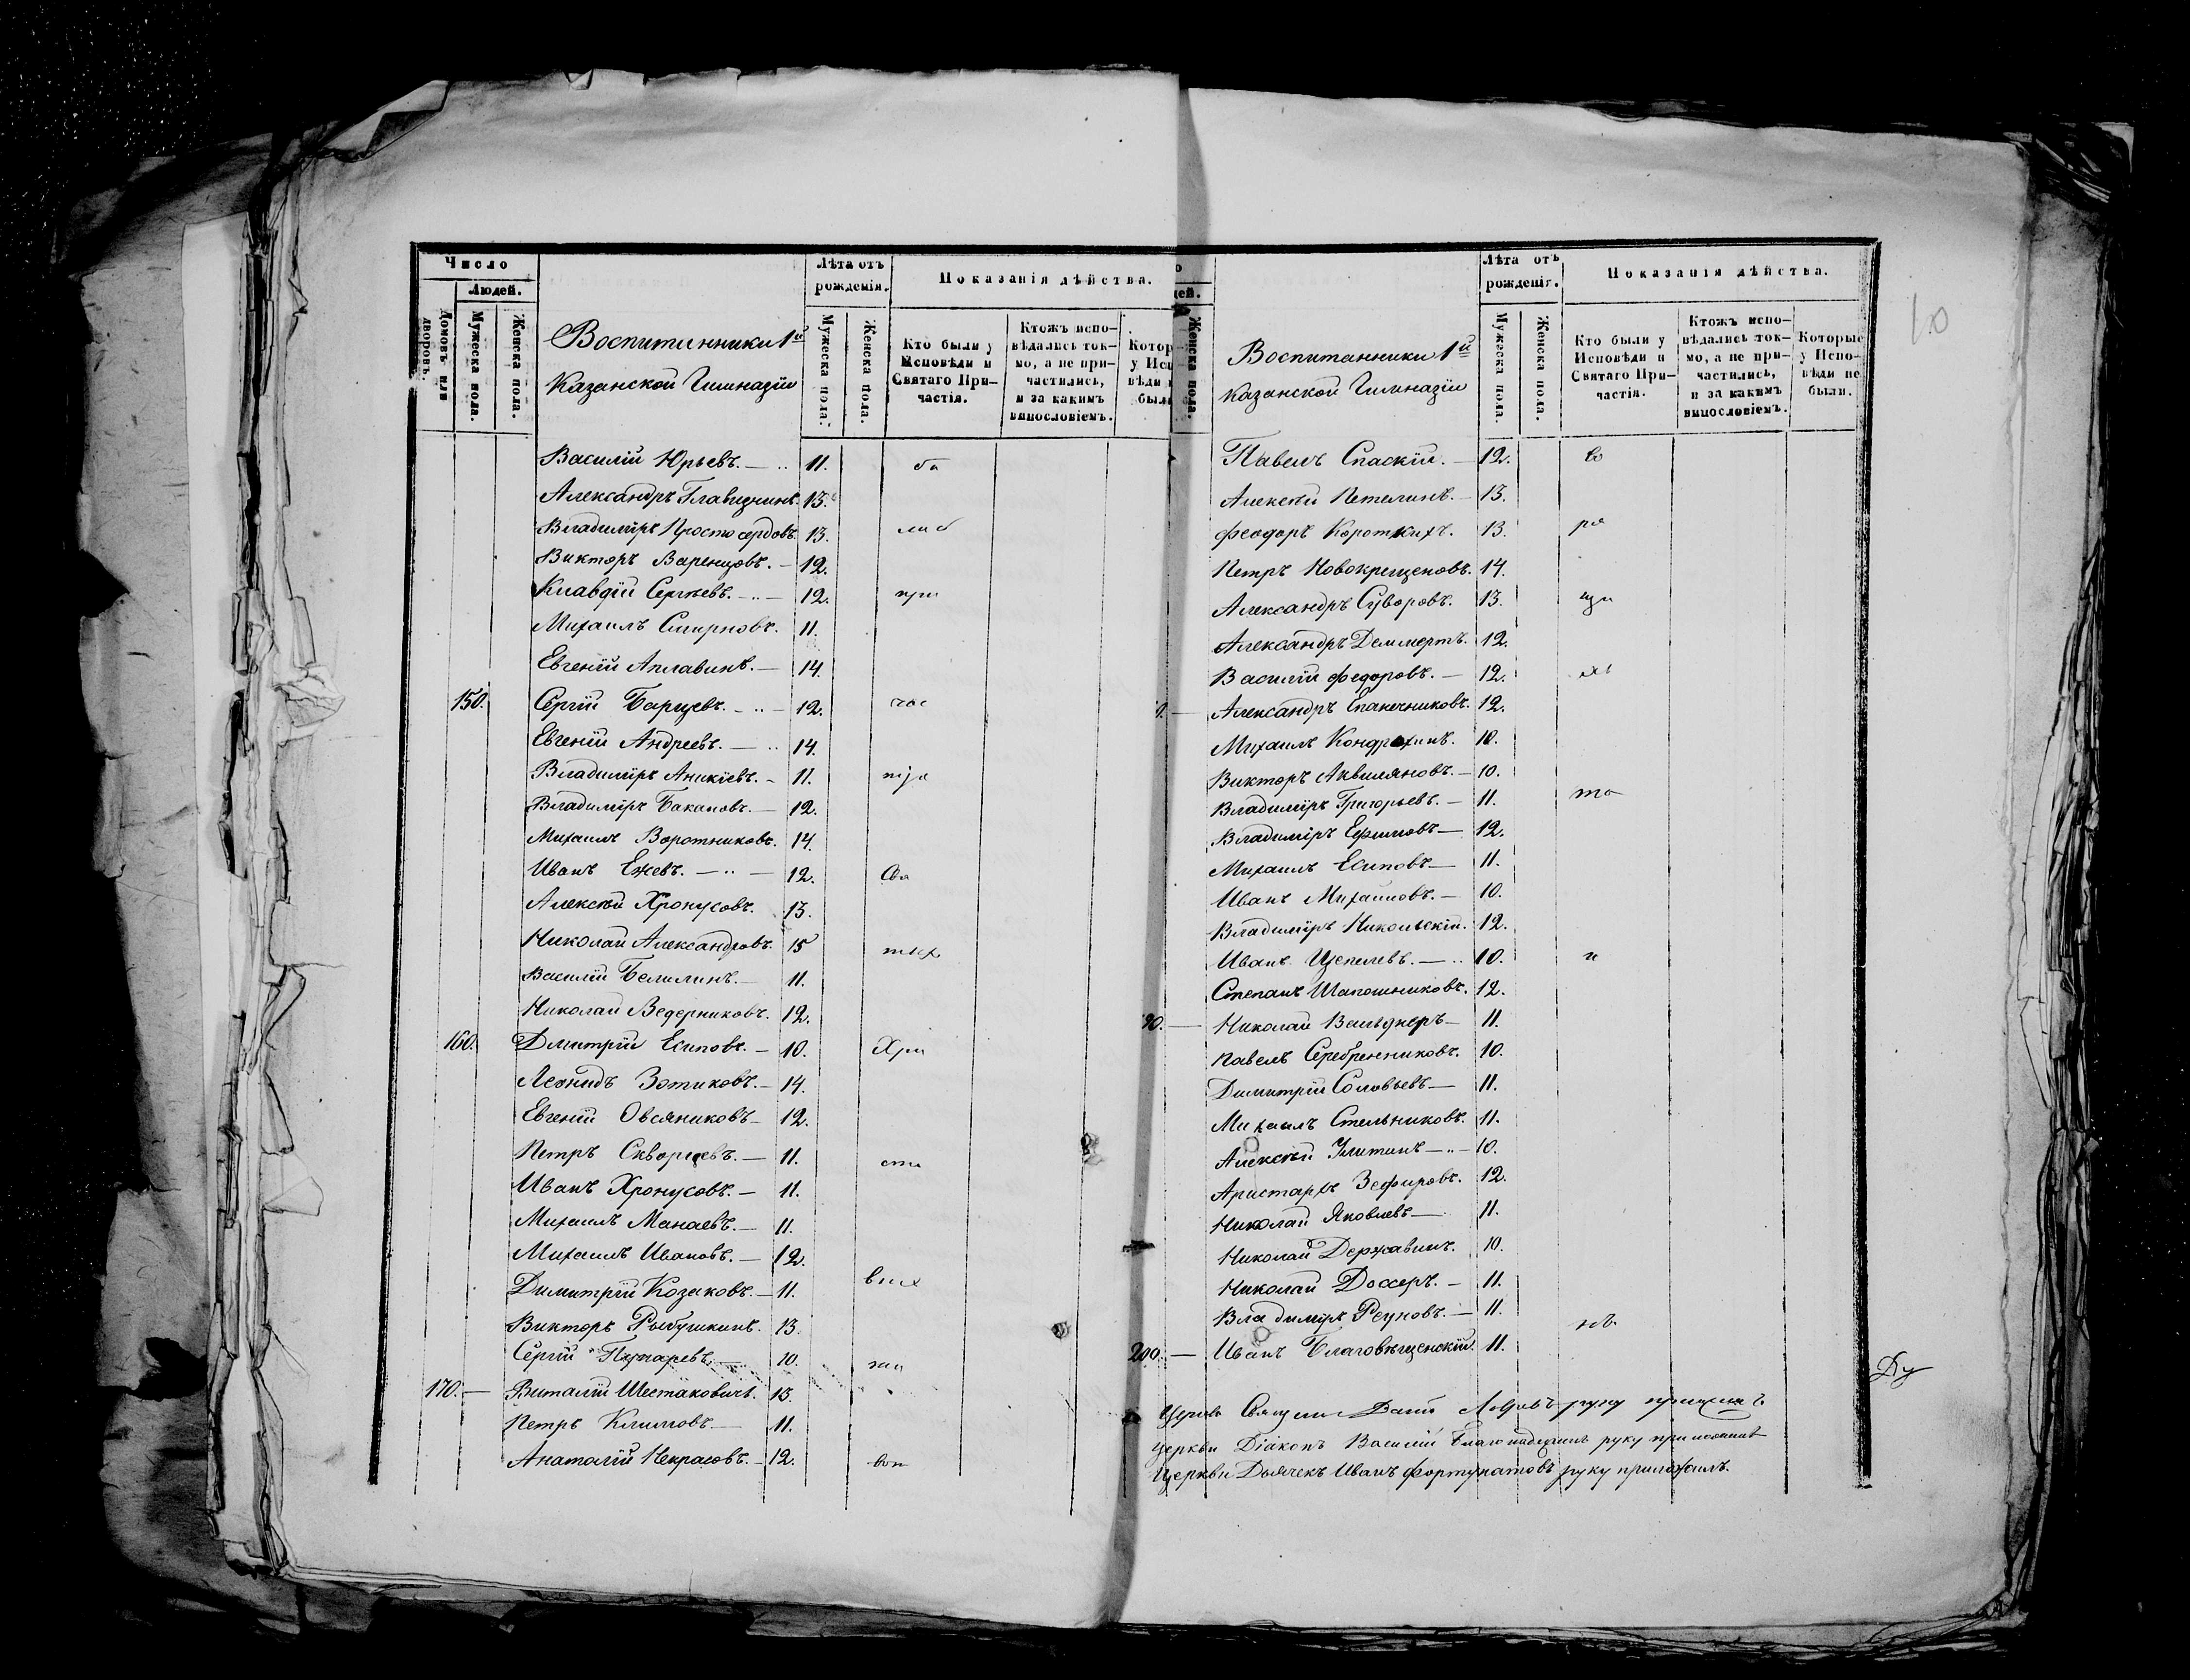 Число
Людей.
Домовъ или дворовъ.
Мужеска пола.
Женска пола.
Воспитанники 1й
Казанской Гимназіи
Лѣта отъ
рожденія.
Мужеска пола.
Женска пола.
Показанія дѣйства.
Кто были у
Исповѣди и
Святаго При-
частія.
Ктожъ испо-
вѣдались ток-
мо, а не при-
частились,
и за какимъ
винословіемъ.
Василій Юрьевъ. 11.
Александръ Главизнинъ. 13.
Владиміръ Простосердовъ. 13.
Викторъ Варенцовъ. 12.
Клавдій Сергѣевъ. 12. при
Михаилъ Смирновъ. 11.
Евгеній Аплавинъ. 14.
150. Сергій Барцевъ. 12. час
Евгеній Андреевъ. 14.
Владиміръ Аникіевъ. 11.
Владиміръ Бакановъ. 12.
Михаилъ Воротниковъ. 14.
Иванъ Ежевъ. 12. Свя
Алексѣй Хронусовъ. 13.
Николай Александровъ. 15
Василій Белилинъ. 11.
Николай Ведерниковъ. 12.
160. Дмитрій Есиповъ. 10. Хри
Леонидъ Зотиковъ. 14.
Евгеній Овсяниковъ 12.
Петръ Скворцевъ. 11. сто
Иванъ Хронусовъ. 11.
Михаилъ Манаевъ. 11.
Михаилъ Ивановъ. 12.
Димитрій Козаковъ. 11. выхъ
Викторъ Рыбушкинъ. 13.
Сергій 10.
170. Виталій Шестаковичъ. 13.
Петръ Климовъ 11.
Анатолій Некрасовъ. 12.
Женска пола.
Воспитанники 1й
Казанской Гимназіи
Лѣта отъ
рожденія.
Мужеска пола.
Женска пола.
Показанія дѣйства.
Кто были у
Исповѣди и
Святаго При-
частія.
Ктожъ испо-
вѣдались ток-
мо, а не при-
частились,
и за какимъ
винословіемъ.
Которые
у Испо-
вѣди не
были.
10
Павелъ Спаскій. 12.
Алексѣй Петелинъ. 13.
Феодоръ Короткихъ. 13.
Петръ Новокрещеновъ. 14.
Александръ Суворовъ. 13.
Александръ Деммертъ. 12.
Василій Федоровъ. 12.
Александръ Епанечниковъ. 12.
Михаилъ Кондрахинъ. 10.
Викторъ Аквиляновъ. 10.
Владиміръ Григорьевъ. 11. то
Владиміръ Ефимовъ 12.
Михаилъ Есиповъ 11.
Иванъ Михайловъ. 10.
Владиміръ Никольскій. 12.
Иванъ Щепелевъ. 10. и
Степанъ Шапошниковъ. 12.
90. Николай Вальднеръ 11.
Павелъ Серебренниковъ. 10.
Димитрій Соловьевъ 11.
Михаилъ Стельниковъ. 11.
Алексѣй Улитинъ 10.
Аристархъ Зефировъ. 12.
Николай Яковлевъ 11.
Николай Державинъ. 10.
Николай Доссеръ. 11.
Владиміръ Реуновъ. 11.
200. Иванъ Благовѣщенскій. 11.
Церкви Діаконъ Василій Благонадеждинъ руку приложилъ
Церкви Дьячекъ Иванъ Фортунатовъ руку приложилъ.